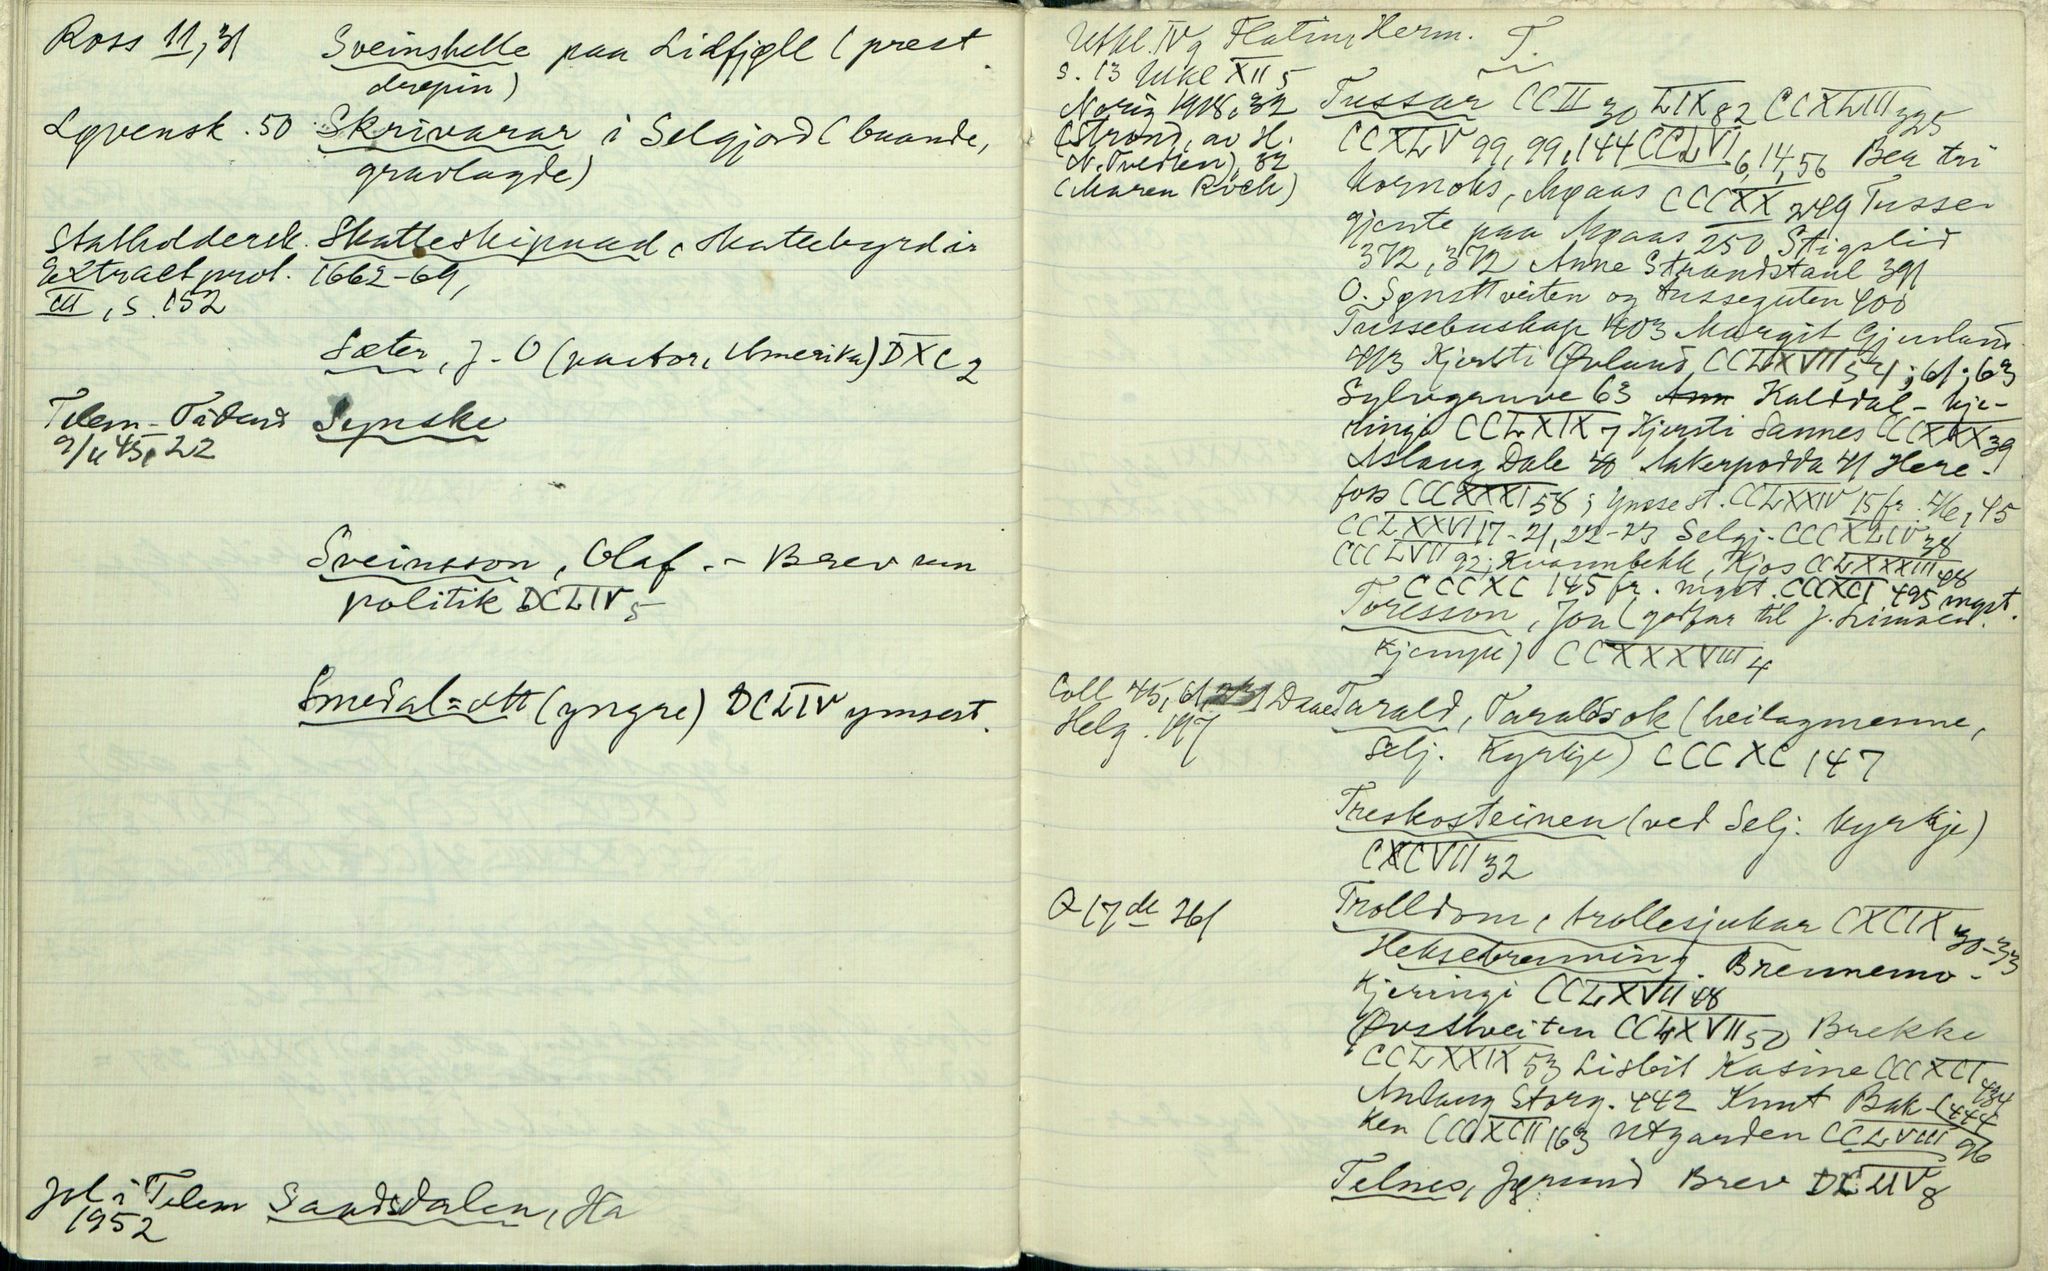 Ross 11, 31 Sveinshelle paa Lidfjøll (prest
drepin)
Løvensk. 50 Skrivarar i Selgjord (baande,
gravlagde)
Statholdersk. Skatteskipnad, skattebyrd ir
Extractprot. 1662-69,
III, s. 152
Sæter, J. O (pastor, Amerika) DXC 2
Telem-Tidend Synske
9/11 45, 22
Sveinsson, Olaf. - Brev um
politik DCLIV 5
Smedal-ætt (yngre) DCLIV ymsest.
Jol i Telem Sandsdalen, Ha
1952
Utkl. IV 9 Flatin, Herm. T.
s. 13 Utkl XII 5
Norig 1918, 32 Tussar CCII 30 LIX 82 CCXLIII 325
(Strond, av H. CCXLV 99, 99, 144 CCLVI 6, 14, 56 Bea tri
N. Tvedten), 32 kornoks, Mpaas CCCXX 249 Tusse-
(Maren Roch) gjente paa Mpaas 250 Stigslid
372, 372 Anne Strandstaul 391
O. Sønsttveiten og tusseguten 400
Tussebuskap 403 Margit Gjuvland
413 Kjersti Øvland CCLXVII 54; 61; 63
Sylvgruve 63 Kalddal-kje-
ringi CCLXIX 7 Kjersti Sannes CCCXXX 39
Aslaug Dale 40 Aakerpodda 41 Here-
foss CCCXXXI 58; ymsest. CCLXXIV 15 fr. 46, 45
CCLXXVI 17-21, 22-23 Selgj. CCCXLIV 38
CCCLVII 92; Kvannbekk, Kjos CCLXXXIII 48
CCCXC 145 fr. mgst. CCCXCI 495 mgst.
Toresson, Jon (godfar til J. Limaen.
Kjempe) CCXXXVIII 4
Coll 45, 61, Daae Tarald, Taraldsok (heilagmenne,
Helg. 197 Selj. Kyrkje) CCCXC 147
Treskosteinen (ved Selj. kyrkje)
CXCVII 32
Q 17 de 261 Trolldom, trollesjukar CXCIX 30-33
Heksebrenning. Brennemo-
kjeringi CCLXVII 48
Øvsthveiten CCLXVII 50 Brekke
CCLXXIX 53 Lisbit Kasine CCCXCI 434
Aslaug Storg. 442 Knut Bak- (444
ken CCCXCII 163 Utgarden CCLVIII 96
Telnes, Jørund Brev DCLIV 8